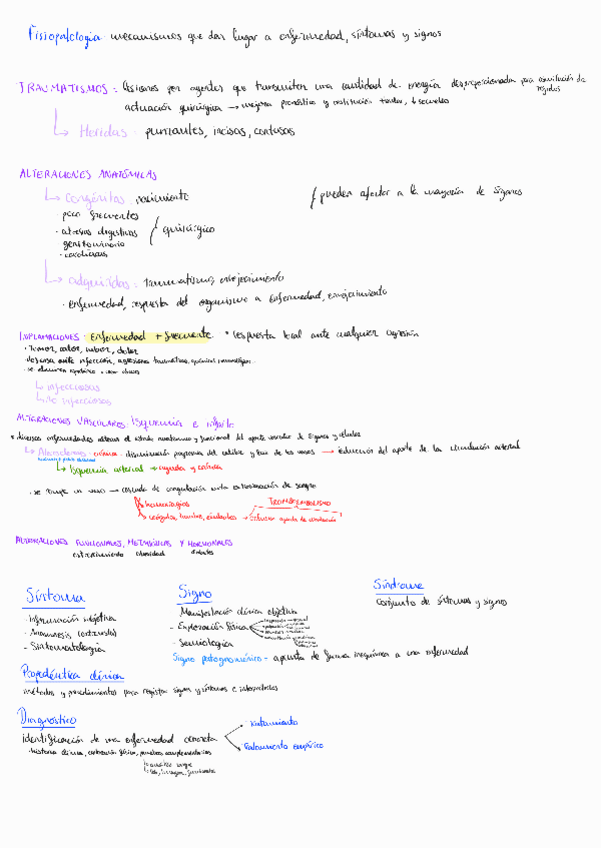 Fisiopatología: mecanismos que dan lugar a enfermedad, síntomas y signos
TRAUMATISMOS: lesiones por agentes que transmiten una cantidad de energía desproporcionada para asimilación de tejidos
actuación quirúrgica → mejora pronóstico y restitución tisular, ↓ secuelas
Heridas: punzantes, incisas, contusas
ALTERACIONES ANATÓMICAS
congénitas: nacimiento
pueden afectar a la mayoría de órganos
· poco frecuentes
· atresias digestivas
quirúrgico
genitourinario
· cardíacas
adquiridas: traumatismos, envejecimiento
· Enfermedad, respuesta del organismo a enfermedad, envejecimiento
INFLAMACIONES: enfermedad + frecuente. * respuesta local ante cualquier agresión
· Tumor, calor, rubor, dolor
infecciosas
No infecciosas
ALTERACIONES VASCULARES: Isquemia e infarto
* diversas enfermedades alteran el estado anatómico y funcional del aporte vascular de órganos y células
disminución progresiva del calibre y luz de los vasos → reducción del aporte de la circulación arterial
Isquemia arterial → aguda y crónica
· se rompe un vaso → cascada de coagulación evita extravasación de sangre
hemorragias
TROMBOEMBOLISMO
ALTERACIONES FUNCIONALES, METABÓLICAS Y HORMONALES
estreñimiento obesidad diabetes
Síntoma
Signo
Síndrome
· Información subjetiva
· Anamnesis (entrevista)
- Sintomatología
Manifestación clínica objetiva
- Exploración física
- Semiología
Signo patognomónico - apunta de forma inequívoca a una enfermedad
Conjunto de síntomas y signos
Propedéutica clínica
métodos y procedimientos para registrar signos y síntomas e interpretarlos
Diagnóstico
Identificación de una enfermedad concreta
· historia clínica, exploración física, pruebas complementarias
tratamiento
tratamiento empírico